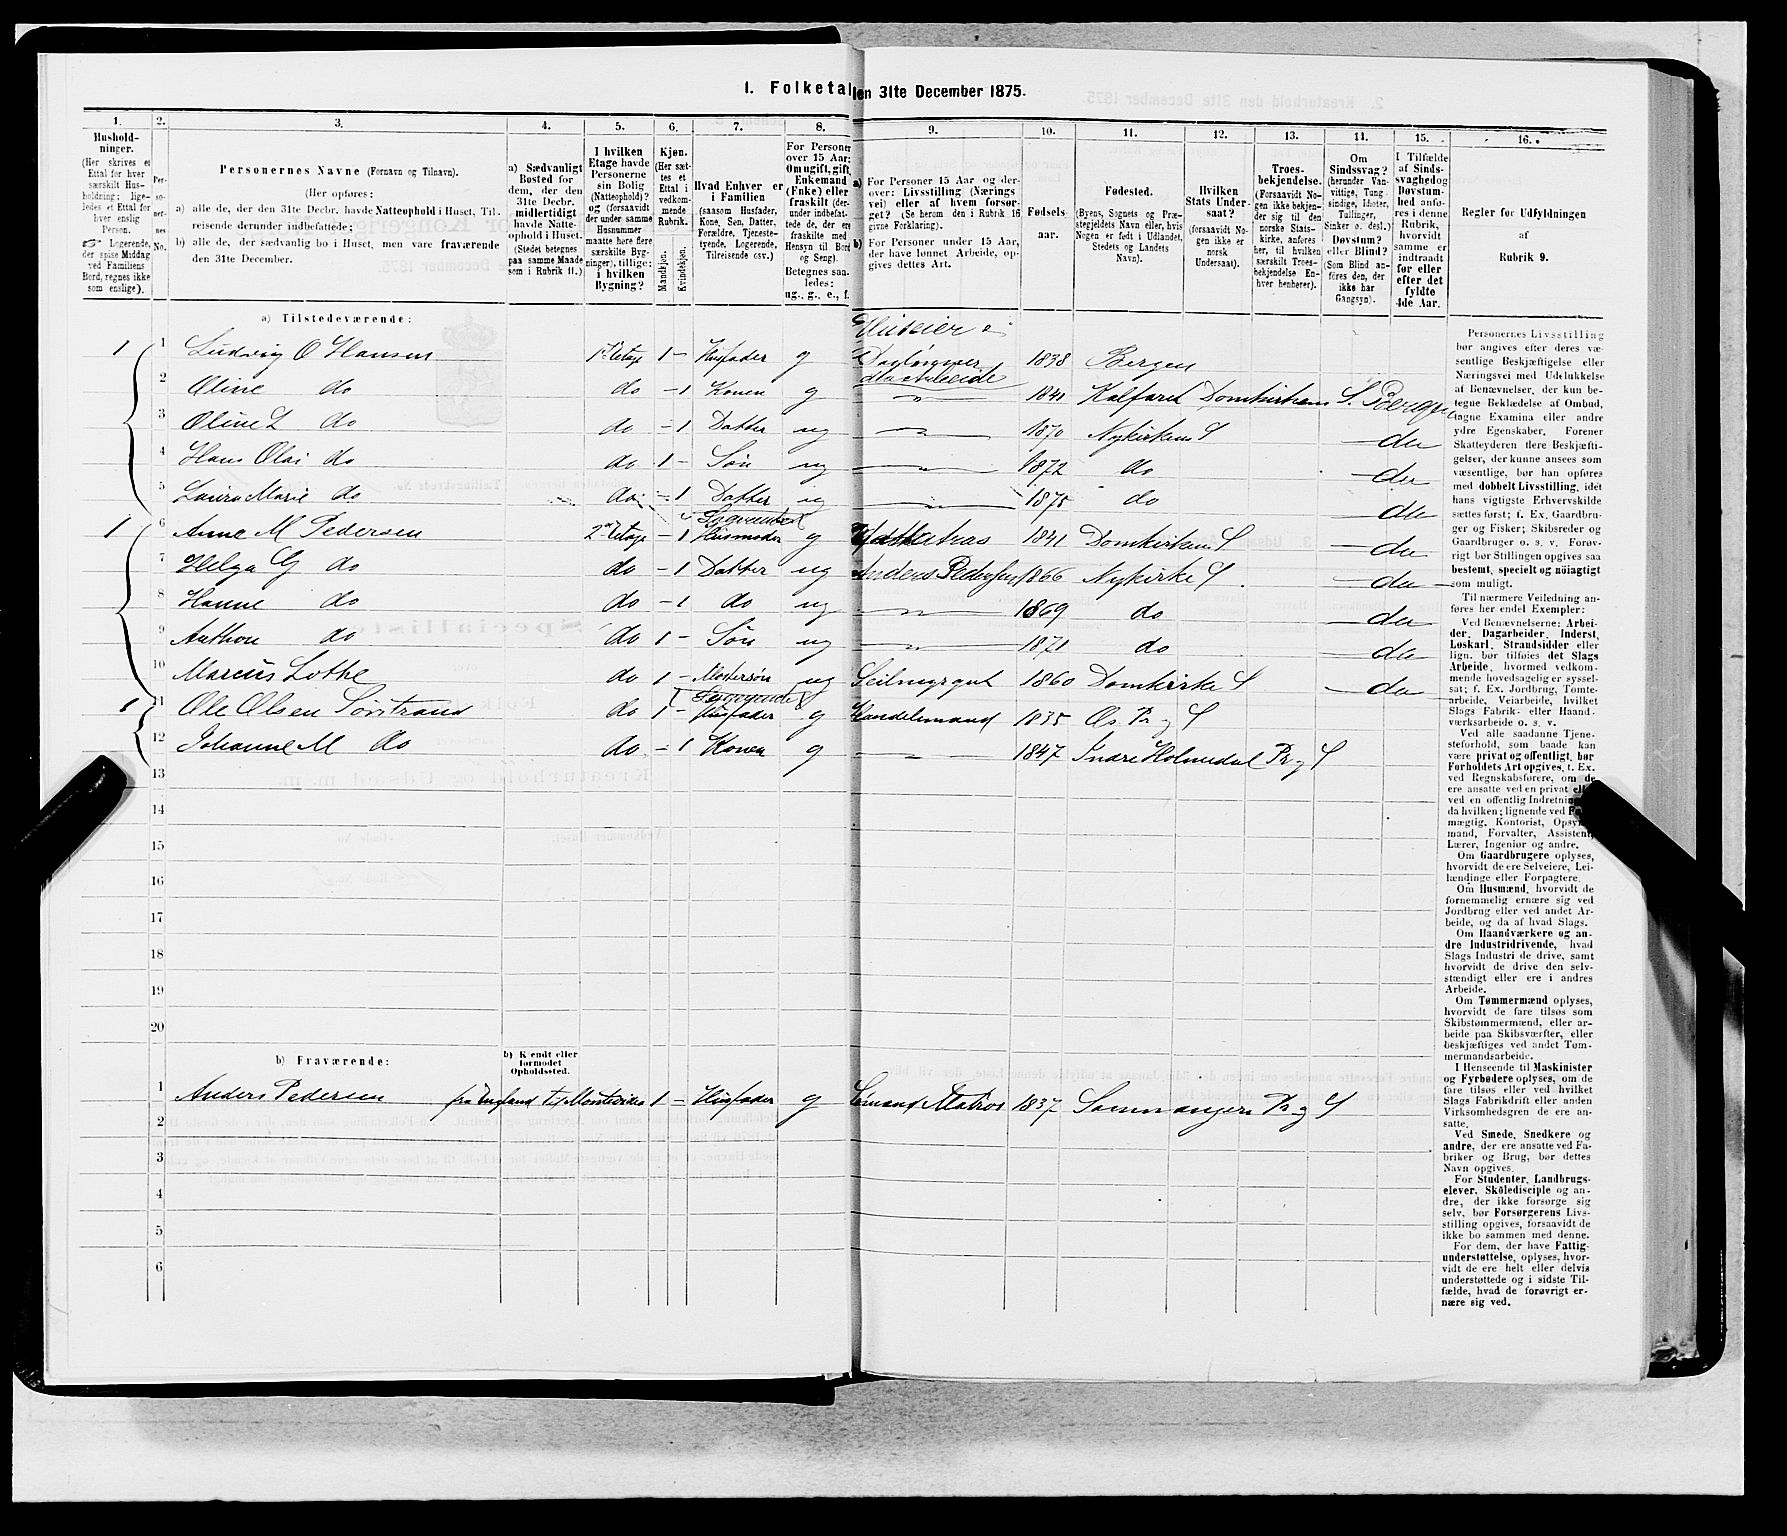 I. Folketal
den 31te December 1875.
1.
Hushold-
ninger.
(Her skrives et
Ettal for hver
særskilt Hus-
holdning; lige-
ledes et Ettal for
hver enslig
Person.
Logerende,
der spise Middag
ved Familiens
Bord, regnes ikke
som enslige).
2.
Per-
so-
ner-
nes
No.
3.
Personernes Navne (Fornavn og Tilnavn).
(Her opføres:
a) alle de, der den 31te Decbr. havde Natteophold i Huset, Til-
reisende derunder indbefattede;
b) alle de, der sædvanlig bo i Huset, men vare fraværende
den 31te December.
4.
a) Sædvanligt
Bosted for
dem, der den
31te Decbr.
midlertidigt
havde Natte-
ophold i Huset.
(Stedet betegnes
paa samme Maade
som i Rubrik 11.)
5.
I hvilken
Etage havde
Personerne
sin Bolig
(Natteophold)?
og (forsaavidt
der under samme
Husnummer
maatte høre flere
særskilte Byg-
ninger), tillige:
i hvilken
Bygning?
6.
Kjøn.
(Her sæt-
tes et
Ettal i
vedkom-
mende
Rubrik.)
Mandkjøn.
Kvindekjøn.
7.
Hvad Enhver er
i Familien
(saasom Husfader,
Kone, Søn, Datter,
Forældre, Tjeneste-
tyende, Logerende,
Tilreisende osv.)
8.
For Personer
over 15 Aar:
Om ugift, gift,
Enkemand
(Enke) eller
fraskilt (der-
under indbefat-
tede de, der ere
fraskilte med
Hensyn til Bord
og Seng).
Betegnes saa-
ledes:
ug., g., e., f.
9.
a) For Personer 15 Aar og der-
over: Livsstilling (Nærings
vei) eller af hvem forsør-
get? (Se herom den i Rubrik 16
givne Forklaring).
b) For Personer under 15 Aar,
der have lønnet Arbeide, op-
gives dettes Art.
10.
Fødsels-
aar.
11.
Fødested.
(Byens, Sognets og Præ-
stegjeldets Navn eller, hvis
Nogen er født i Udlandet,
Stedets og Landets
Navn).
12.
Hvilken
Stats Under-
saat?
(forsaavidt No-
gen ikke er
norsk
Undersaat).
13.
Troes-
bekjendelse.
(Forsaavidt No-
gen ikke bekjen-
der sig til den
norske Stats-
kirke, anføres
her, til hvilken
særskilt Troes-
bekjendelse En-
hver henhører).
14.
Om
Sindssvag?
(herunder Van-
vittige, Tung-
sindige, Idioter,
Tullinger,
Sinker o. desl.)
Døvstum?
eller Blind?
(Som Blind an-
føres den, der
ikke har
Gangsyn).
15.
I Tilfælde
af Sinds-
svaghed og
Døvstum-
hed anfø-
res i denne
Rubrik,
hvorvidt
samme er
indtraadt
før eller
efter det
fyldte
4de Aar.
16.
Regler for Udfyldningen
af
Rubrik 9.
a) Tilstedeværende:
Huseier
1 1 Ludvig O Hansen 1ste Etage 1 – Husfader g Daglønner 1838 Bergen
2 Oline do do – 1 Konen g 1841 Kalfaret Domkirkens S. Bergen
3 Oline L do do – 1 Datter ug 1870 Nykirkens S do
4 Hans Olai do do 1 – Søn ug 1872 do do
5 Laura Marie do do – 1 Datter ug 1875 do do
Logerende
1 6 Anne M Pedersen 2den Etage – 1 Husmoder g 1841 Domkirkens S do
7 Helga G do do – 1 Datter ug Anders Pedersen 1866 Nykirke S do
8 Hanne do do – 1 do ug 1869 do do
9 Anthon do do 1 – Søn ug 1871 do do
10 Marcus Lothe do 1 – ug 1860 Domkirke S do
Logerende
1 11 Ole Olsen Sørstrand do 1 – Husfader g Handelsmand 1835 Os Pr g S
12 Johanne M do do – 1 Konen g 1847 Indre Holmedal Pr g S
13
14
15
16
17
18
19
20
b) Fraværende:
b) Kendt eller
formodet
Opholdssted.
1 Anders Pedersen fra England til Montevideo 1 – Husfader g Sømand Matros 1837 Samnanger Pr g S
2
3
4
5
6
Personernes Livsstilling
bør angives efter deres væ-
sentlige Beskjæftigelse eller
Næringsvei med Udelukkelse
af Benævnelser, der kun be-
tegne Beklædelse af Ombud,
tagne Examina eller andre
ydre Egenskaber. Forener
Skatteyderen flere Beskjæfti-
gelser, der kunne ansees som
væsentlige, bør han opføres
med dobbelt Livsstilling, idet
hans vigtigste Erhvervskilde
sættes først; f. Ex. Gaardbru-
ger og Fisker; Skibsreder og
Gaardbruger o. s. v. Forøv-
rigt bør Stillingen opgives saa
bestemt, specielt og nöiagtigt
som muligt.
Til nærmere Veiledning an-
føres her endel Exempler:
Ved Benævnelserne: Arbei-
der, Dagarbeider, Inderst,
Løskarl, Strandsidder eller
lign. bør tilføies det Slags
Arbeide, hvormed vedkom-
mende hovedsagelig er syssel-
sat; f. Ex. Jordbrug, Tomte-
arbeide, Veiarbeide, hvilket
Slags Fabrik- eller Haand-
værksarbeide o. s. v.
Ved alle saadanne Tjene-
steforhold, som baade kan
være privat og offentligt, bør
Forholdets Art opgives, t. Ex.
ved Regnskabsførere, om de
ere ansatte ved en privat
ved en offentlig
da hvilken; lignende ved
mægtig, Kontorist,
mand, Forvalter, Assistent,
Lærer, Ingeniør og andre.
Om Gaardbrugere oplyses,
hvorvidt de ere Selveiere, Lei-
lændinge eller Forpagtere.
Om Husmænd, hvorvidt de
fornemmelig ernære sig ved
Jordbrug eller ved andet Ar-
beide, og da af hvad Slags.
Om Haandværkere og an-
dre Industridrivende, hvad
Slags Industri de drive, samt
hvorvidt de drive den selv-
stændigt eller ere i andres
Arbeide.
Om Tømmermænd oplyses,
hvorvidt de fare tilsøs som
Skibstømmermænd, eller ar-
beide paa Skibsværfter, eller
beskjæftiges ved andet Tøm-
mermandsarbeide.
I Henseende til Maskinister
og Fyrbødere oplyses, om de
fare tilsøs eller ved hvilket
Slags Fabrikdrift eller anden
Virksomhedsgren de ere an-
satte.
Ved Smede, Snedkere og
andre, der ere ansatte ved Fa-
briker og Brug, bør dettes
Navn opgives.
For Studenter, Landbrugs-
elever, Skölediscipie og an-
dre, der ikke forsørge sig
selv, bør Forsørgerens Livs-
stilling opgives, forsaavidt de
ikke bo sammen med denne.
For dem, der have Fattig-
understøttelse, oplyses, hvor-
vidt de ere helt eller delvis
understøttede og i sidste Til-
fælde, hvad de forøvrigt er-
nære sig ved.